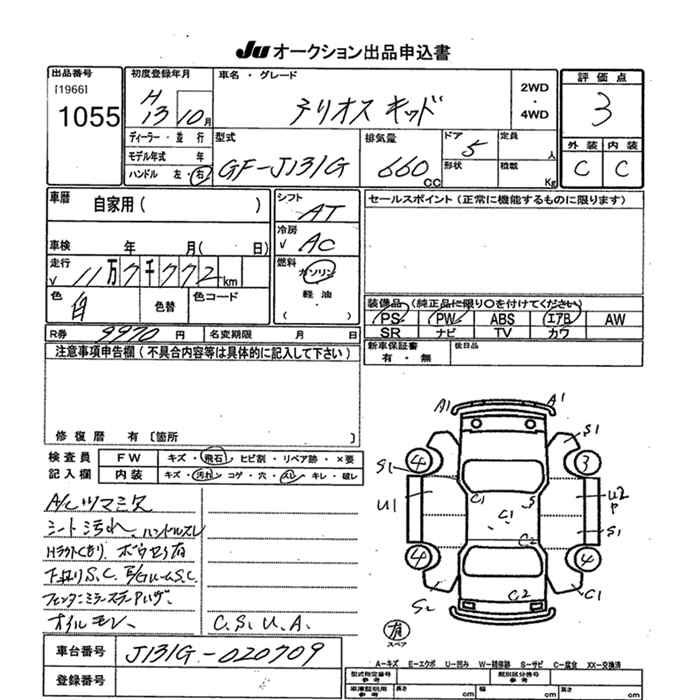 Ju オークション出品申込書
出品番号
[1966]
1055
初度登録年月
H 13 10月
車名・グレード
テリオス キッド
2WD
・
4WD
評価点
3
外装 内装
C C
ディーラー・並行
モデル年式 年
ハンドル 左・右
型式
GF-J131G
排気量
660 cc
ドア
5
形状
定員
人
積載
Kg
車歴
自家用( )
車検 年 月( 日)
走行
√ 11万7千772km
色
白
色替
色コード
シフト
AT
冷房
√ AC
燃料
ガソリン
軽油
( )
セールスポイント(正常に機能するものに限ります)
装備品(純正品に限り○を付けてください)
PS PW ABS エアB AW
SR ナビ TV カワ
R券 9970円
名変期限 月 日
新車保証書
有・無
後日品
注意事項申告欄(不具合内容等は具体的に記入して下さい)
修復歴 有〔箇所 〕
検査員
記入欄
FW キズ・飛石・ヒビ割・リペア跡・×要
内装 キズ・汚れ・コゲ・穴・スレ・キレ・破レ
A/Cツマミ欠
シート汚れ、ハンドルスレ
Hライトくもり
下廻りS.C.
オイルモレ
C.S.U.A.
A1 A1
S1
4 3
S2
U1
C1 S
C1
U2
P
S1
C2
4 4
S2
C2
C1
有
スペア
A-キズ E-エクボ U-凹み W-補修跡 S-サビ C-腐食 XX-交換済
車台番号
J131G-020709
登録番号
型式指定番号
参考
類別区分番号
参考
車庫証明用
参考
長さ cm 幅 cm 高さ cm